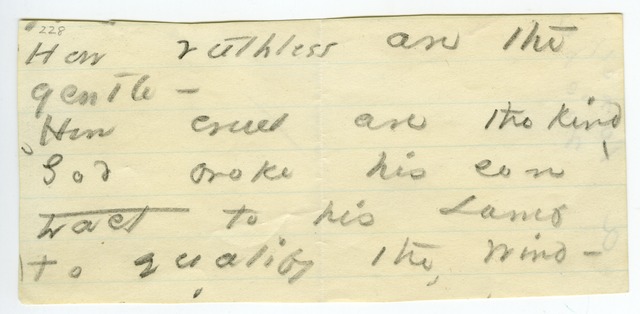 228
How ruthless are the
gentle –
How cruel are the kind
God broke his con
tract to his Lamb
to qualify the Wind –